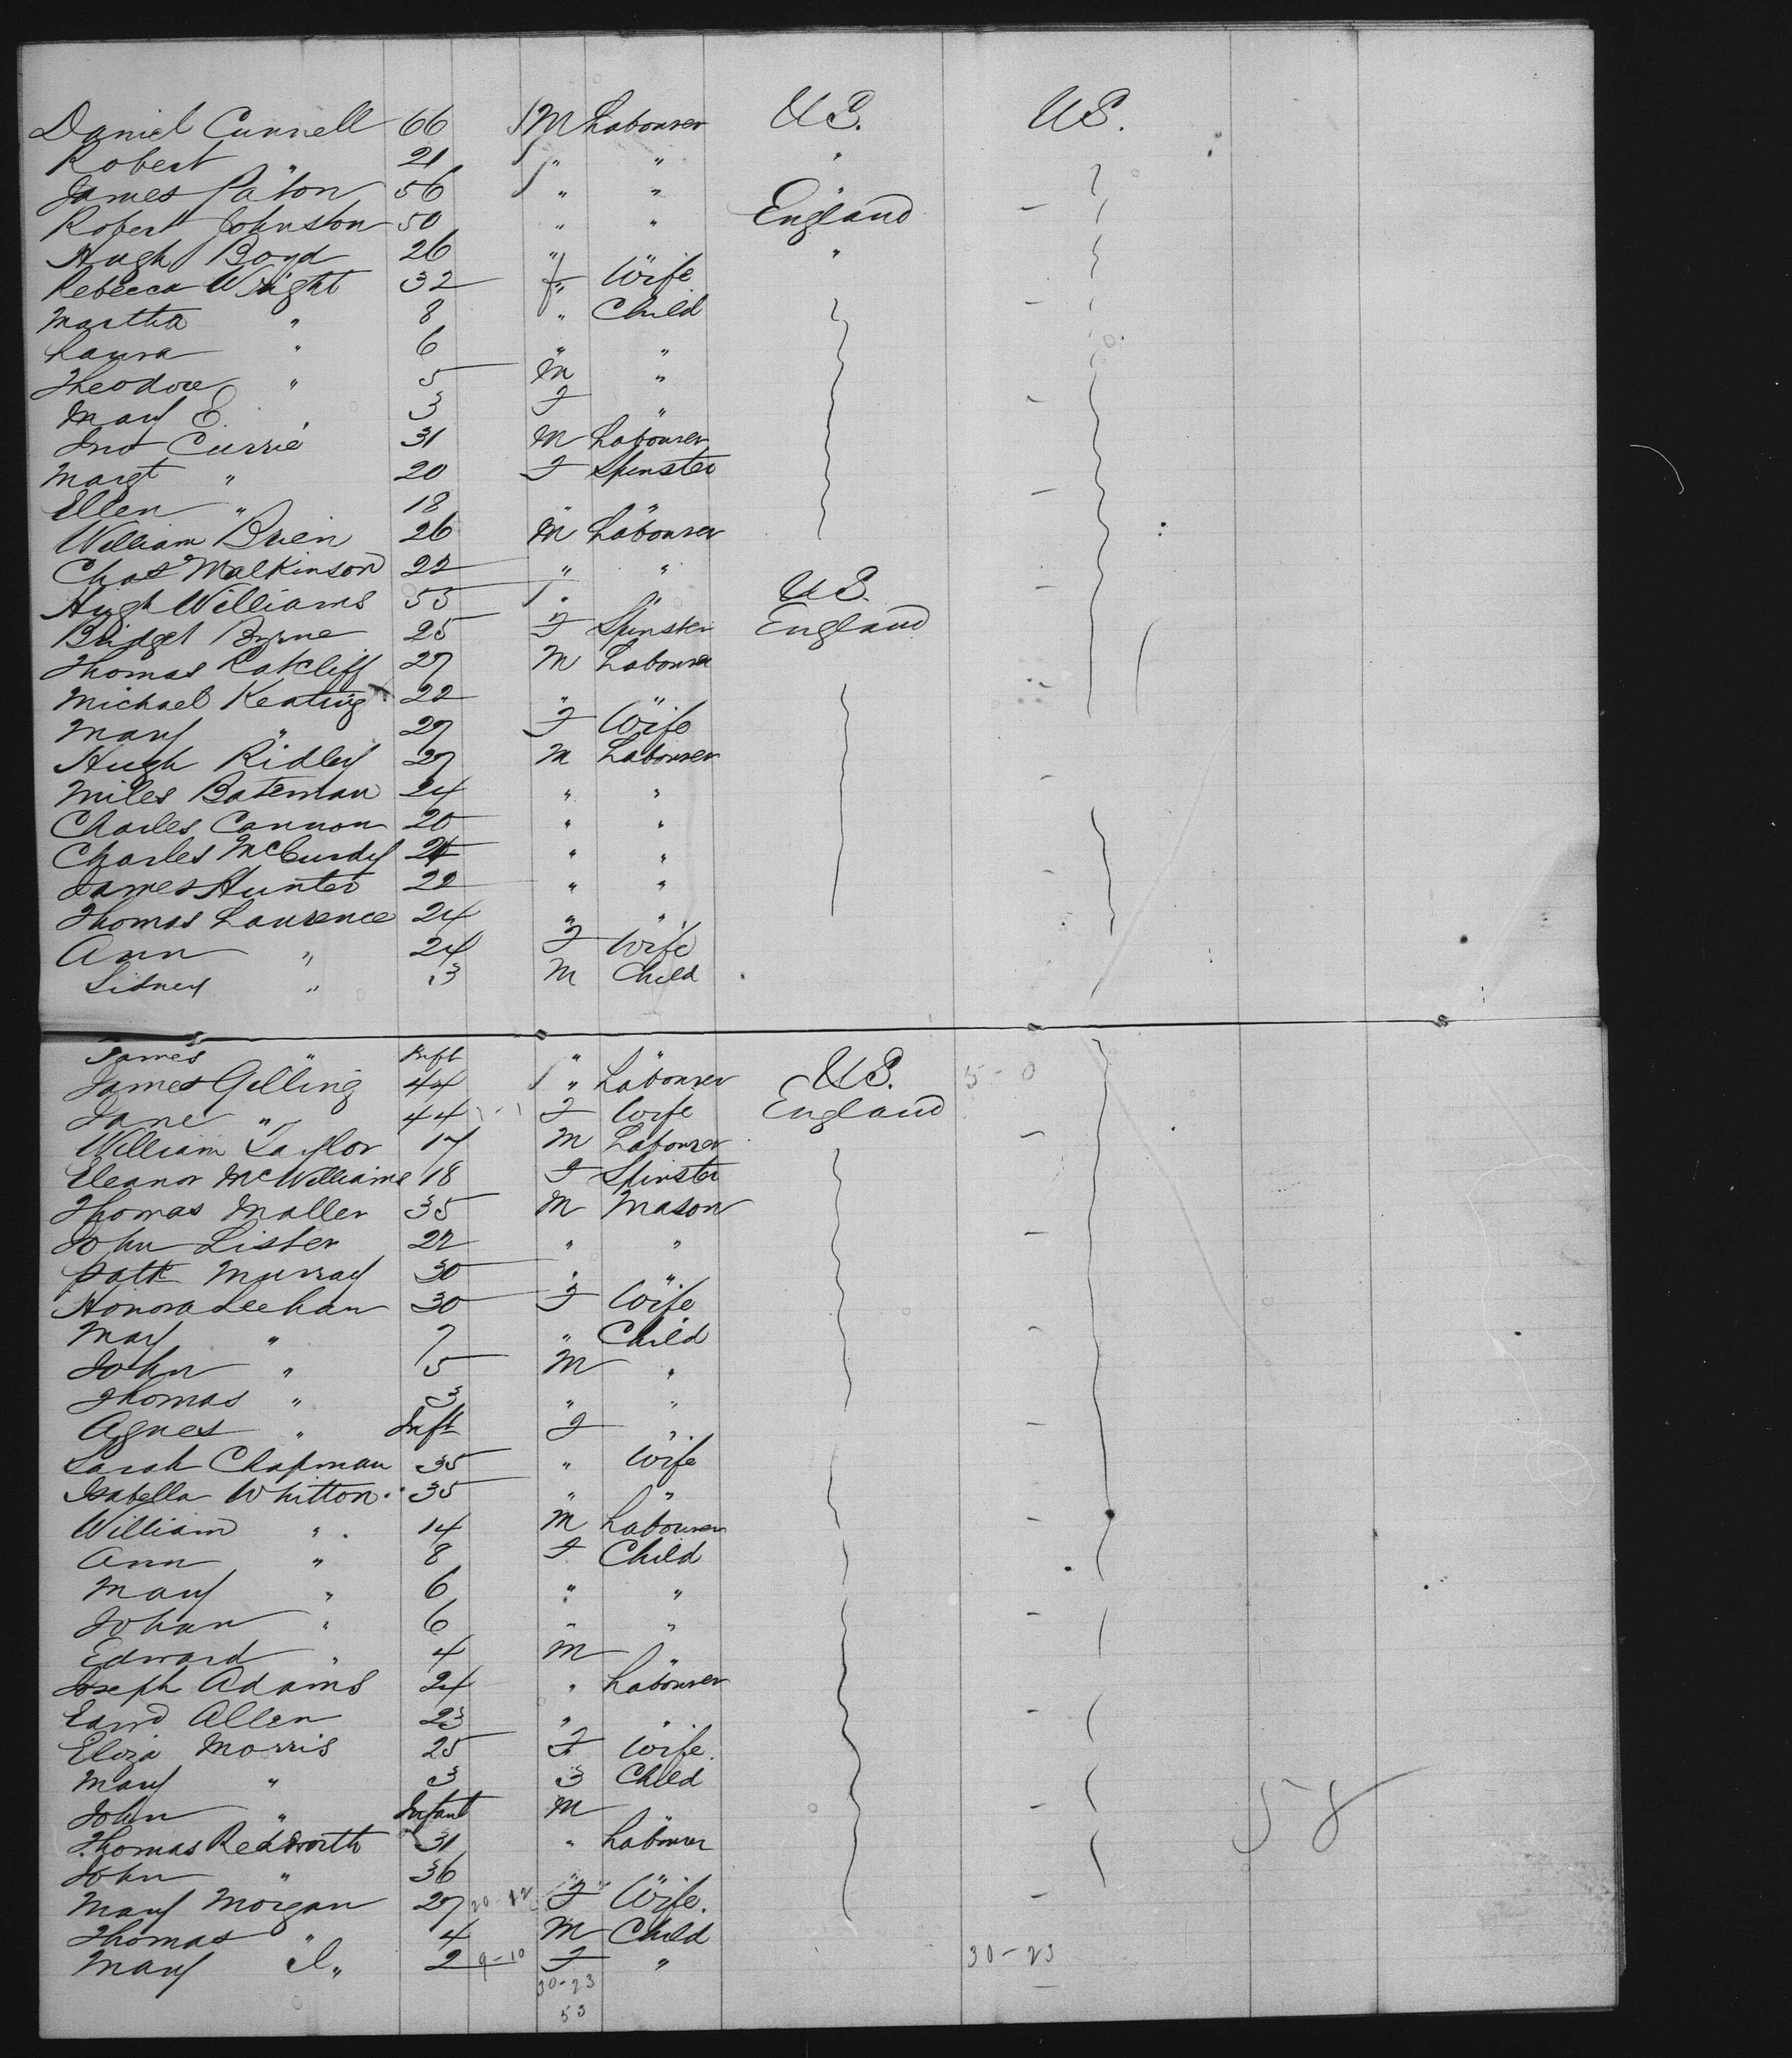 Daniel Cunnell 66 M Labourer U S. U S.
Robert " 21 " " "
James Paton 56 " " "
Robert Johnston 50 " " England
Hugh Boyd 26 " " "
Rebecca Wright 32 f " Wife
Martha " 8 " Child
Laura " 6 " "
Theodore " 5 M "
Mary E. " 3 F "
Jno Currie 31 M Labourer
Margt " 20 F Spinster
Ellen " 18 " "
William Brien 26 M Labourer
Chas Malkinson 22 " "
Hugh Williams 55 " " U S.
Bridget Byrne 25 F Spinster England
Thomas Ratcliff 27 M Labourer
Michael Keating 22 " "
Mary " 27 F Wife
Hugh Ridley 27 M Labourer
Miles Bateman 24 " "
Charles Cannon 20 " "
Charles McCurdy 24 " "
James Hunter 22 " "
Thomas Laurence 24 " "
Ann " 24 F Wife
Sidney " 3 M Child
James " Inft " "
James Gelling 44 " Labourer U S. 5-0
Jane " 44 F Wife England
William Taylor 17 M Labourer
Eleanor McWilliams 18 F Spinster
Thomas Maller 35 M Mason
John Lister 22 " "
Patk Murray 30 " "
Honora Leehan 30 F Wife
Mary " 7 " Child
John " 5 M "
Thomas " 3 " "
Agnes " Inft F "
Sarah Chapman 35 " Wife
Isabella Whitton 35 " "
William " 14 M Labourer
Ann " 8 F Child
Mary " 6 " "
Johan " 6 " "
Edward " 4 M "
Joseph Adams 24 " Labourer
Edwd Allen 23 " "
Eliza Morris 25 F Wife.
Mary " 3 " Child
John " Infant M 58
Thomas Redworth 31 " Labourer
John " 36 " "
Mary Morgan 27 20-12 F Wife.
Thomas " 4 M Child
Mary J " 2 9-10 F " 30-23
30-23
53